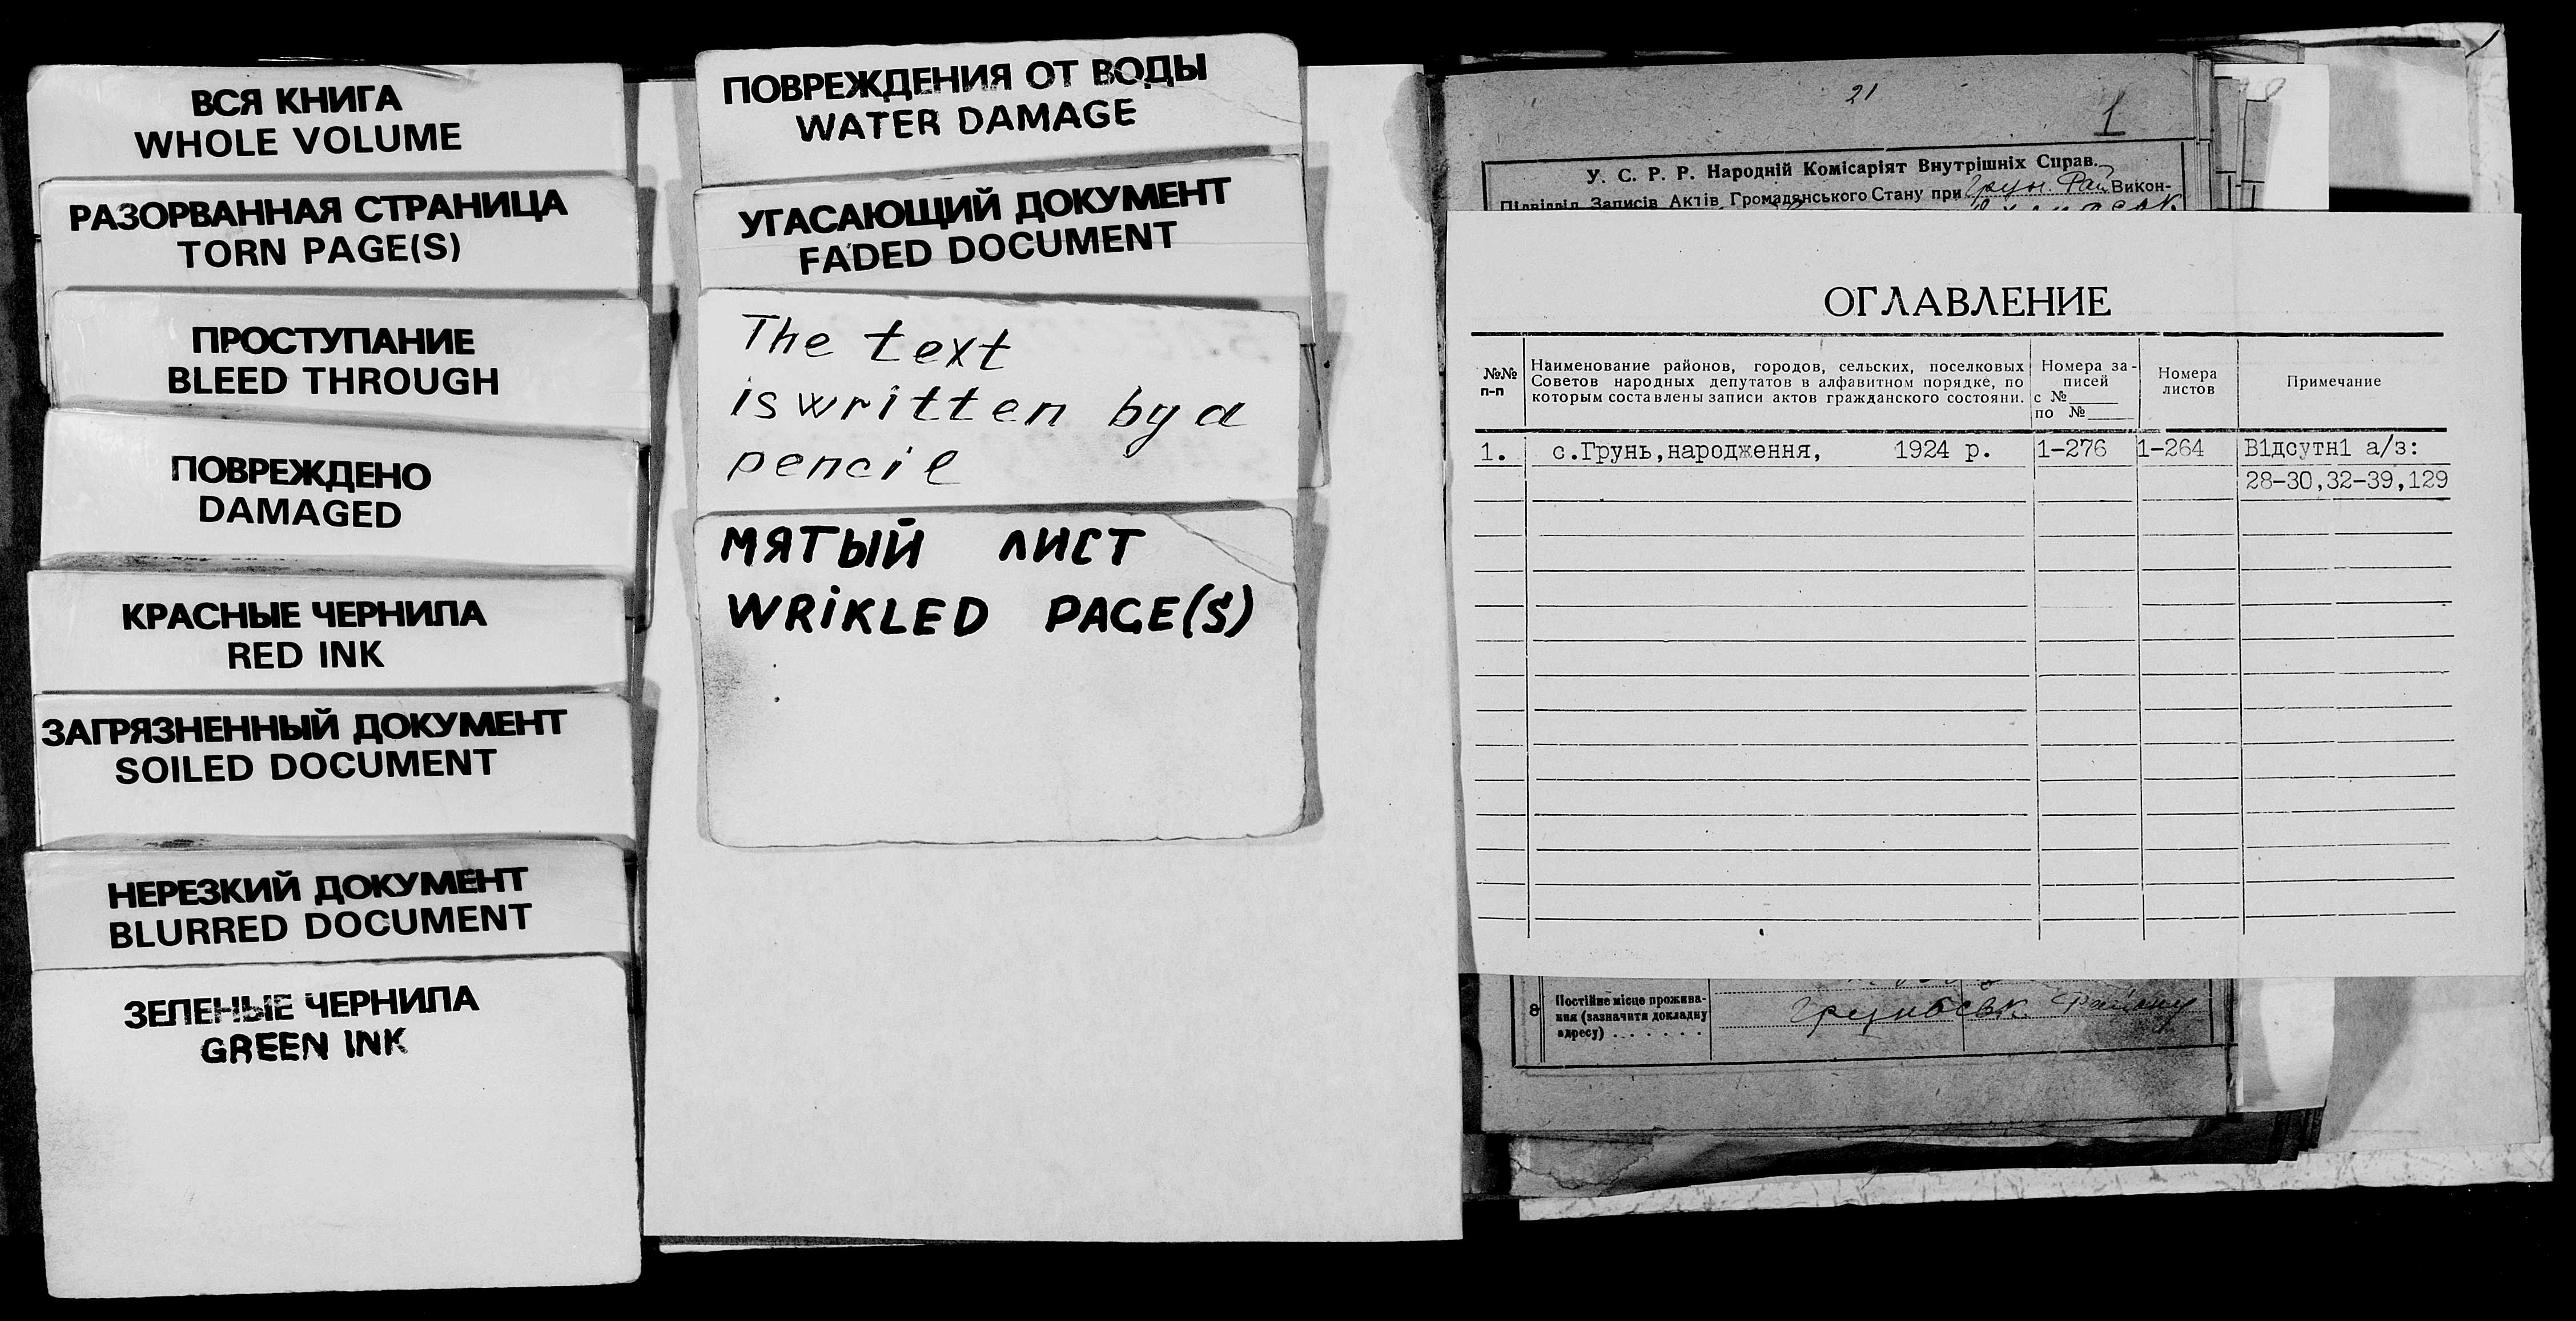 ВСЯ КНИГА
WHOLE VOLUME
РАЗОРВАННАЯ СТРАНИЦА
TORN PAGE(S)
ПРОСТУПАНИЕ
BLEED THROUGH
ПОВРЕЖДЕНО
DAMAGED
КРАСНЫЕ ЧЕРНИЛА
RED INK
ЗАГРЯЗНЕННЫЙ ДОКУМЕНТ
SOILED DOCUMENT
НЕРЕЗКИЙ ДОКУМЕНТ
BLURRED DOCUMENT
ЗЕЛЕНЫЕ ЧЕРНИЛА
GREEN INK
ПОВРЕЖДЕНИЯ ОТ ВОДЫ
WATER DAMAGE
УГАСАЮЩИЙ ДОКУМЕНТ
FADED DOCUMENT
The text
is written by a
pencil
МЯТЫЙ ЛИСТ
WRIKLED PAGE(S)
21
1
У. С. Р. Р. Народній Комісаріят Внутрішніх Справ.
Підвідділ Записів Актів Громадянського Стану при Грун. Рай Викон-
ОГЛАВЛЕНИЕ
№№ п-п
Наименование районов, городов, сельских, поселковых
Советов народных депутатов в алфавитном порядке, по
которым составлены записи актов гражданского состояни.
Номера за-
писей
с №
по №
Номера
листов
Примечание
1. с.Грунь,народження, 1924 р. 1-276 1-264 В1дсутн1 а/з:
28-30,32-39,129
8 Постійне місце прожива-
ння (зазначити докладну
адресу) . . . . . .
Грунськ. Району